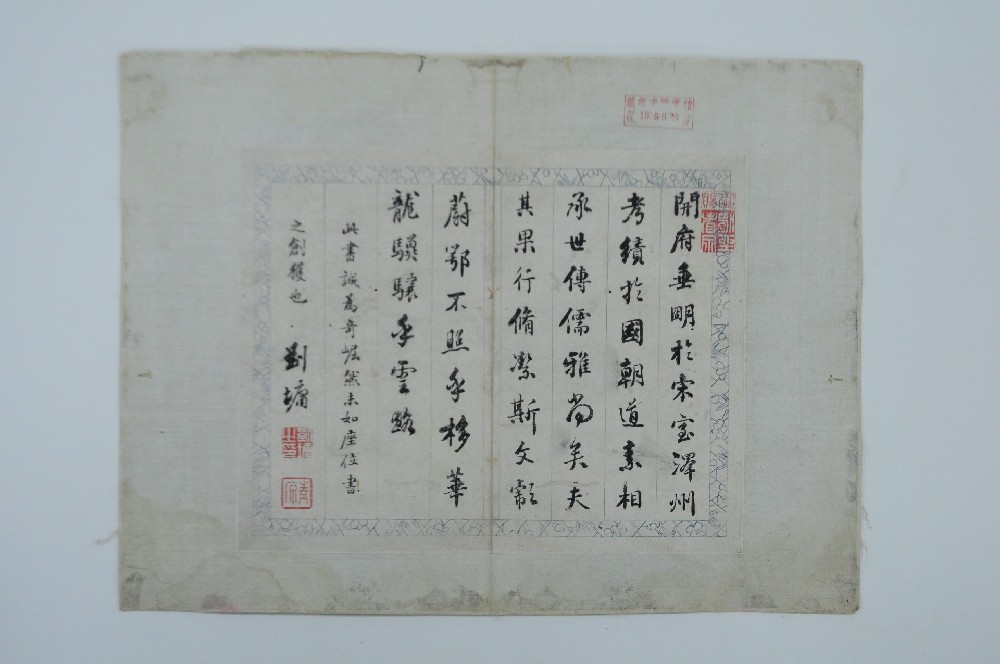 開府垂明於宋室澤州
考績於國朝道素相
承世傳儒雅尚矣夫
其果行脩潔斯文彪
蔚鄂不照乎棣華
龍驥驤乎雲路
此書誠為奇崛然未如座位書
之創獲也 劉墉